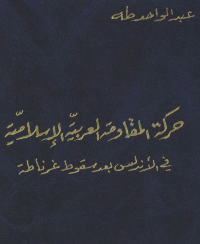 عبد الواحد ذنون طه
حركة المقاومة العربية الإسلامية
في الأندلس بعد سقوط غرناطة